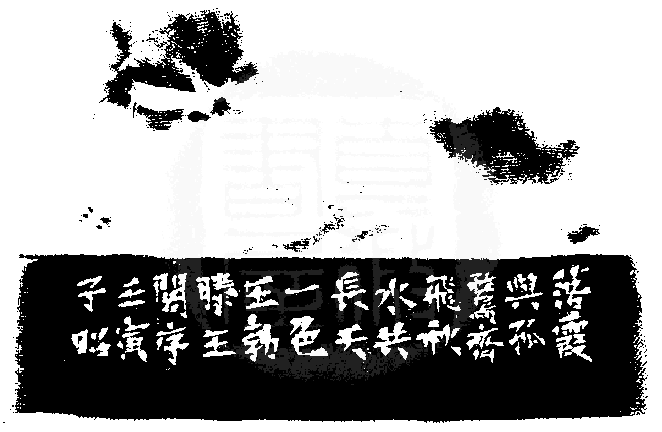 落霞
與孤
鶩齊
飛秋
水共
長天
一色
王勃
滕王
閣序
壬寅
子昭